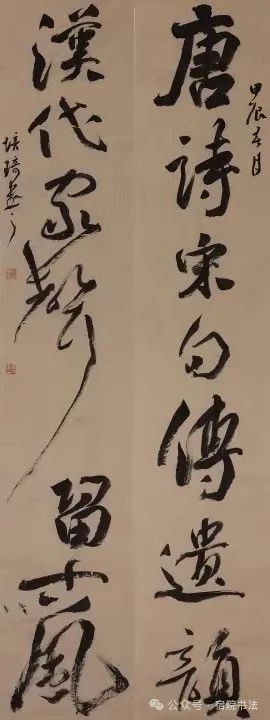 甲辰春月
唐詩宋句傳遺韻
漢代家聲留古風
公众号 · 宿院书法